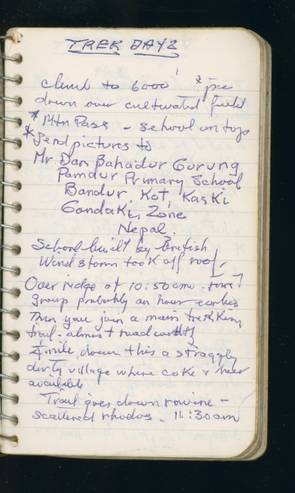 TREK DAY 2
climb to 6000' *pic
down over cultivated field
*Mtn Pass - School on top
*Send pictures to
Mr Dan Bahadur Gurung
Pamdur Primary School
Bandur, Kot, Kaski
Gandaki, Zone
Nepal
School built by British
Wind storm took off roof.
Over ridge at 10:50am - rest?
group probably an hour earlier
Then you join a main trekking
trail - almost road width
¼ mile down this a straggly
dirty village where coke & beer
available
Trail goes down ravine -
scattered rhodos. 11:30am